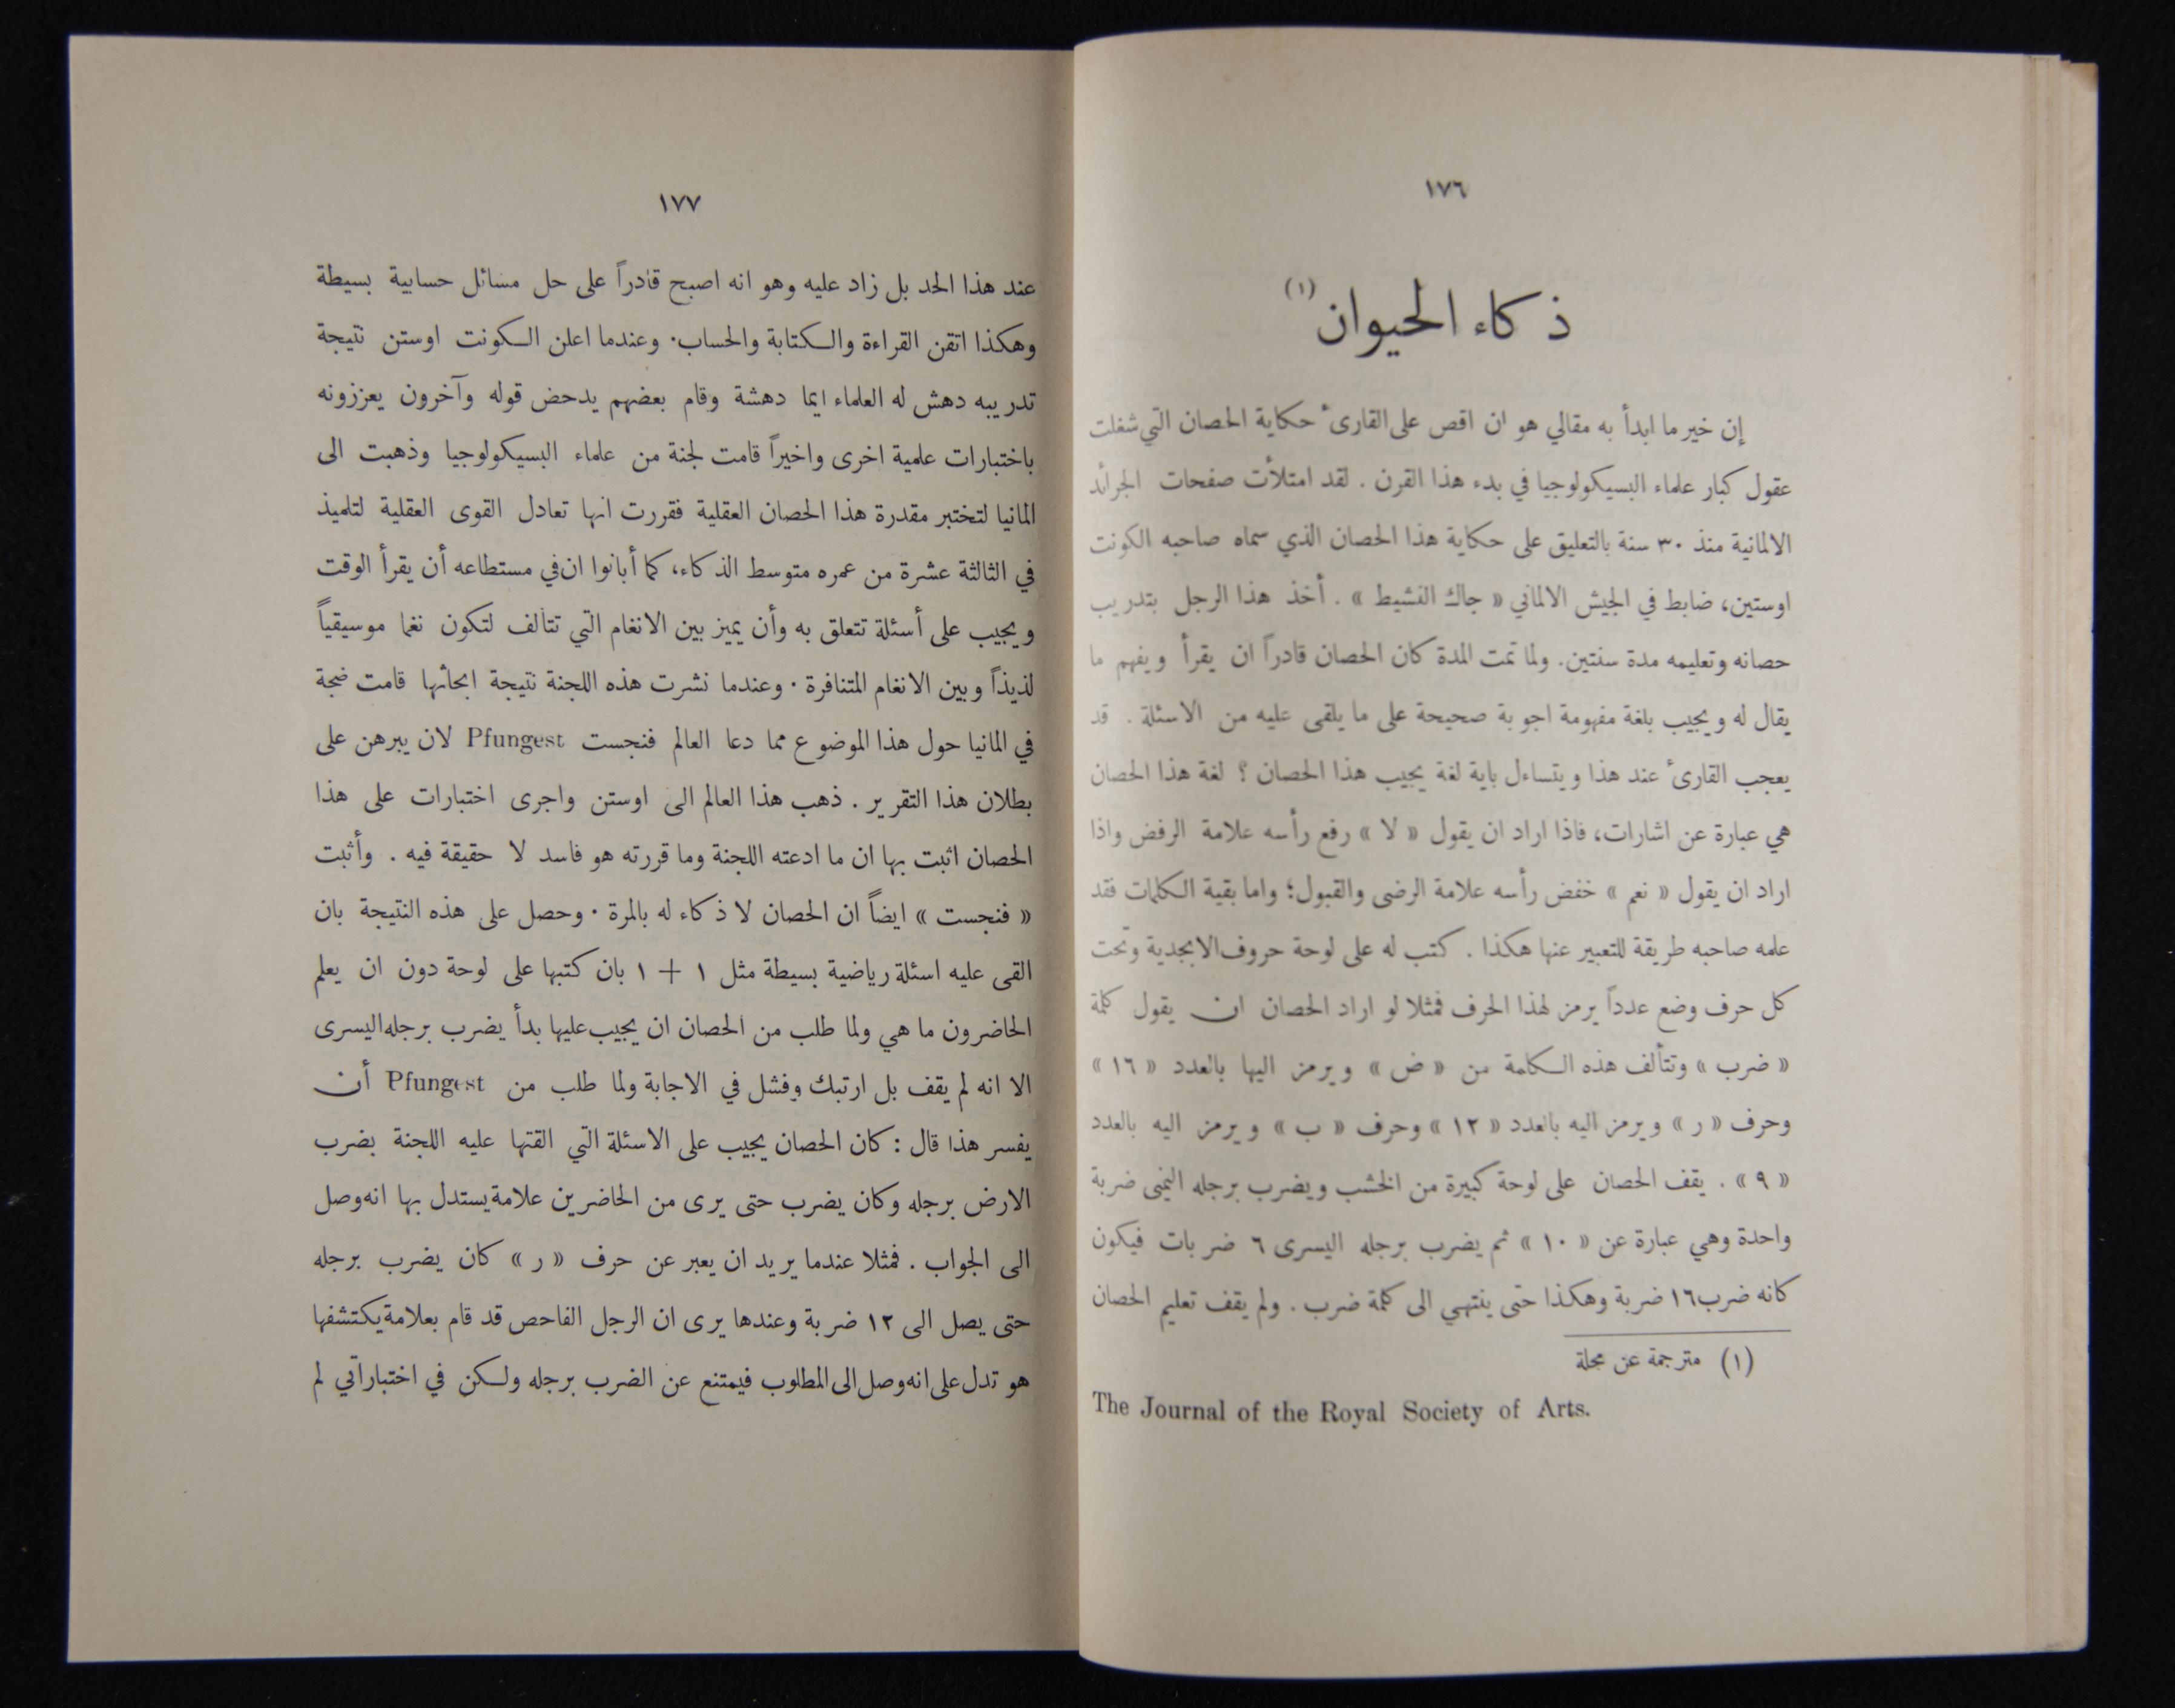 ١٧٦
ذكاء الحيوان (١)
إن خير ما ابدأ به مقالي هو ان اقص على القارئ حكاية الحصان التي شغلت
عقول كبار علماء البسيكولوجيا في بدء هذا القرن . لقد امتلأت صفحات الجرائد
الالمانية منذ ٣٠ سنة بالتعليق على حكاية هذا الحصان الذي سماه صاحبه الكونت
اوستين، ضابط في الجيش الالماني « جاك النشيط » . أخذ هذا الرجل بتدريب
حصانه وتعليمه مدة سنتين. ولما تمت المدة كان الحصان قادراً ان يقرأ ويفهم ما
يقال له ويجيب بلغة مفهومة اجوبة صحيحة على ما يلقى عليه من الاسئلة . قد
يعجب القارئ عند هذا ويتساءل باية لغة يجيب هذا الحصان ؟ لغة هذا الحصان
هي عبارة عن اشارات، فاذا اراد ان يقول « لا » رفع رأسه علامة الرفض واذا
اراد ان يقول « نعم » خفض رأسه علامة الرضى والقبول؛ واما بقية الكلمات فقد
علمه صاحبه طريقة للتعبير عنها هكذا . كتب له على لوحة حروف الابجدية وتحت
كل حرف وضع عدداً يرمز لهذا الحرف فمثلا لو اراد الحصان ان يقول كلمة
« ضرب » وتتألف هذه الكلمة من « ض » ويرمز اليها بالعدد « ١٦ »
وحرف « ر » ويرمز اليه بالعدد « ١٢ » وحرف « ب » ويرمز اليه بالعدد
« ٩ » . يقف الحصان على لوحة كبيرة من الخشب ويضرب برجله اليمنى ضربة
واحدة وهي عبارة عن « ١٠ » ثم يضرب برجله اليسرى ٦ ضربات فيكون
كانه ضرب ١٦ ضربة وهكذا حتى ينتهي الى كلمة ضرب . ولم يقف تعليم الحصان
(١) مترجمة عن مجلة
The Journal of the Royal Society of Arts.
١٧٧
عند هذا الحد بل زاد عليه وهو انه اصبح قادراً على حل مسائل حسابية بسيطة
وهكذا اتقن القراءة والكتابة والحساب. وعندما اعلن الكونت اوستن نتيجة
تدريبه دهش له العلماء ايما دهشة وقام بعضهم يدحض قوله وآخرون يعززونه
باختبارات علمية اخرى واخيراً قامت لجنة من علماء البسيكولوجيا وذهبت الى
المانيا لتختبر مقدرة هذا الحصان العقلية فقررت انها تعادل القوى العقلية لتلميذ
في الثالثة عشرة من عمره متوسط الذكاء، كما أبانوا ان في مستطاعه أن يقرأ الوقت
ويجيب على أسئلة تتعلق به وأن يميز بين الانغام التي تتألف لتكون نغما موسيقياً
لذيذاً وبين الانغام المتنافرة . وعندما نشرت هذه اللجنة نتيجة ابحاثها قامت ضجة
في المانيا حول هذا الموضوع مما دعا العالم فنجست Pfungest لان يبرهن على
بطلان هذا التقرير . ذهب هذا العالم الى اوستن واجرى اختبارات على هذا
الحصان اثبت بها ان ما ادعته اللجنة وما قررته هو فاسد لا حقيقة فيه . وأثبت
« فنجست » ايضاً ان الحصان لا ذكاء له بالمرة . وحصل على هذه النتيجة بان
القى عليه اسئلة رياضية بسيطة مثل ١ + ١ بان كتبها على لوحة دون ان يعلم
الحاضرون ما هي ولما طلب من الحصان ان يجيب عليها بدأ يضرب برجله اليسرى
الا انه لم يقف بل ارتبك وفشل في الاجابة ولما طلب من Pfungest أن
يفسر هذا قال : كان الحصان يجيب على الاسئلة التي القتها عليه اللجنة بضرب
الارض برجله وكان يضرب حتى يرى من الحاضرين علامة يستدل بها انه وصل
الى الجواب . فمثلا عندما يريد ان يعبر عن حرف « ر » كان يضرب برجله
حتى يصل الى ١٢ ضربة وعندها يرى ان الرجل الفاحص قد قام بعلامة يكتشفها
هو تدل على انه وصل الى المطلوب فيمتنع عن الضرب برجله ولكن في اختباراتي لم